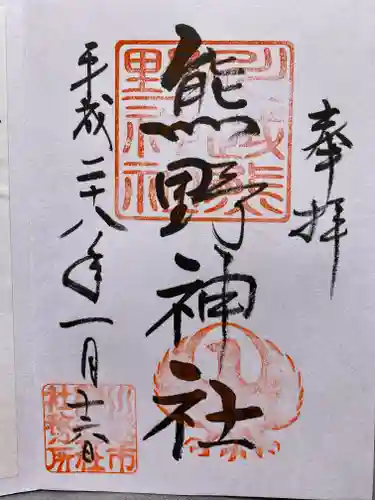 奉拝
熊野神社
平成二十八年一月十六日